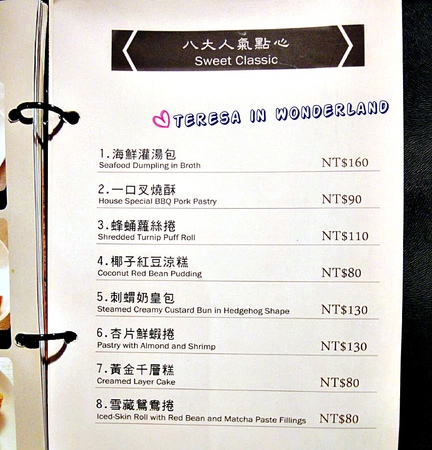 八大人氣點心
Sweet Classic
TERESA IN WONDERLAND
1.海鮮灌湯包
Seafood Dumpling in Broth NT$160
2.一口叉燒酥
House Special BBQ Pork Pastry NT$90
3.蜂蛹蘿絲捲
Shredded Turnip Puff Roll NT$110
4.椰子紅豆涼糕
Coconut Red Bean Pudding NT$80
5.刺蝟奶皇包
Steamed Creamy Custard Bun in Hedgehog Shape NT$130
6.杏片鮮蝦捲
Pastry with Almond and Shrimp NT$130
7.黃金千層糕
Creamed Layer Cake NT$80
8.雪藏鴛鴦捲
Iced-Skin Roll with Red Bean and Matcha Paste Fillings NT$80